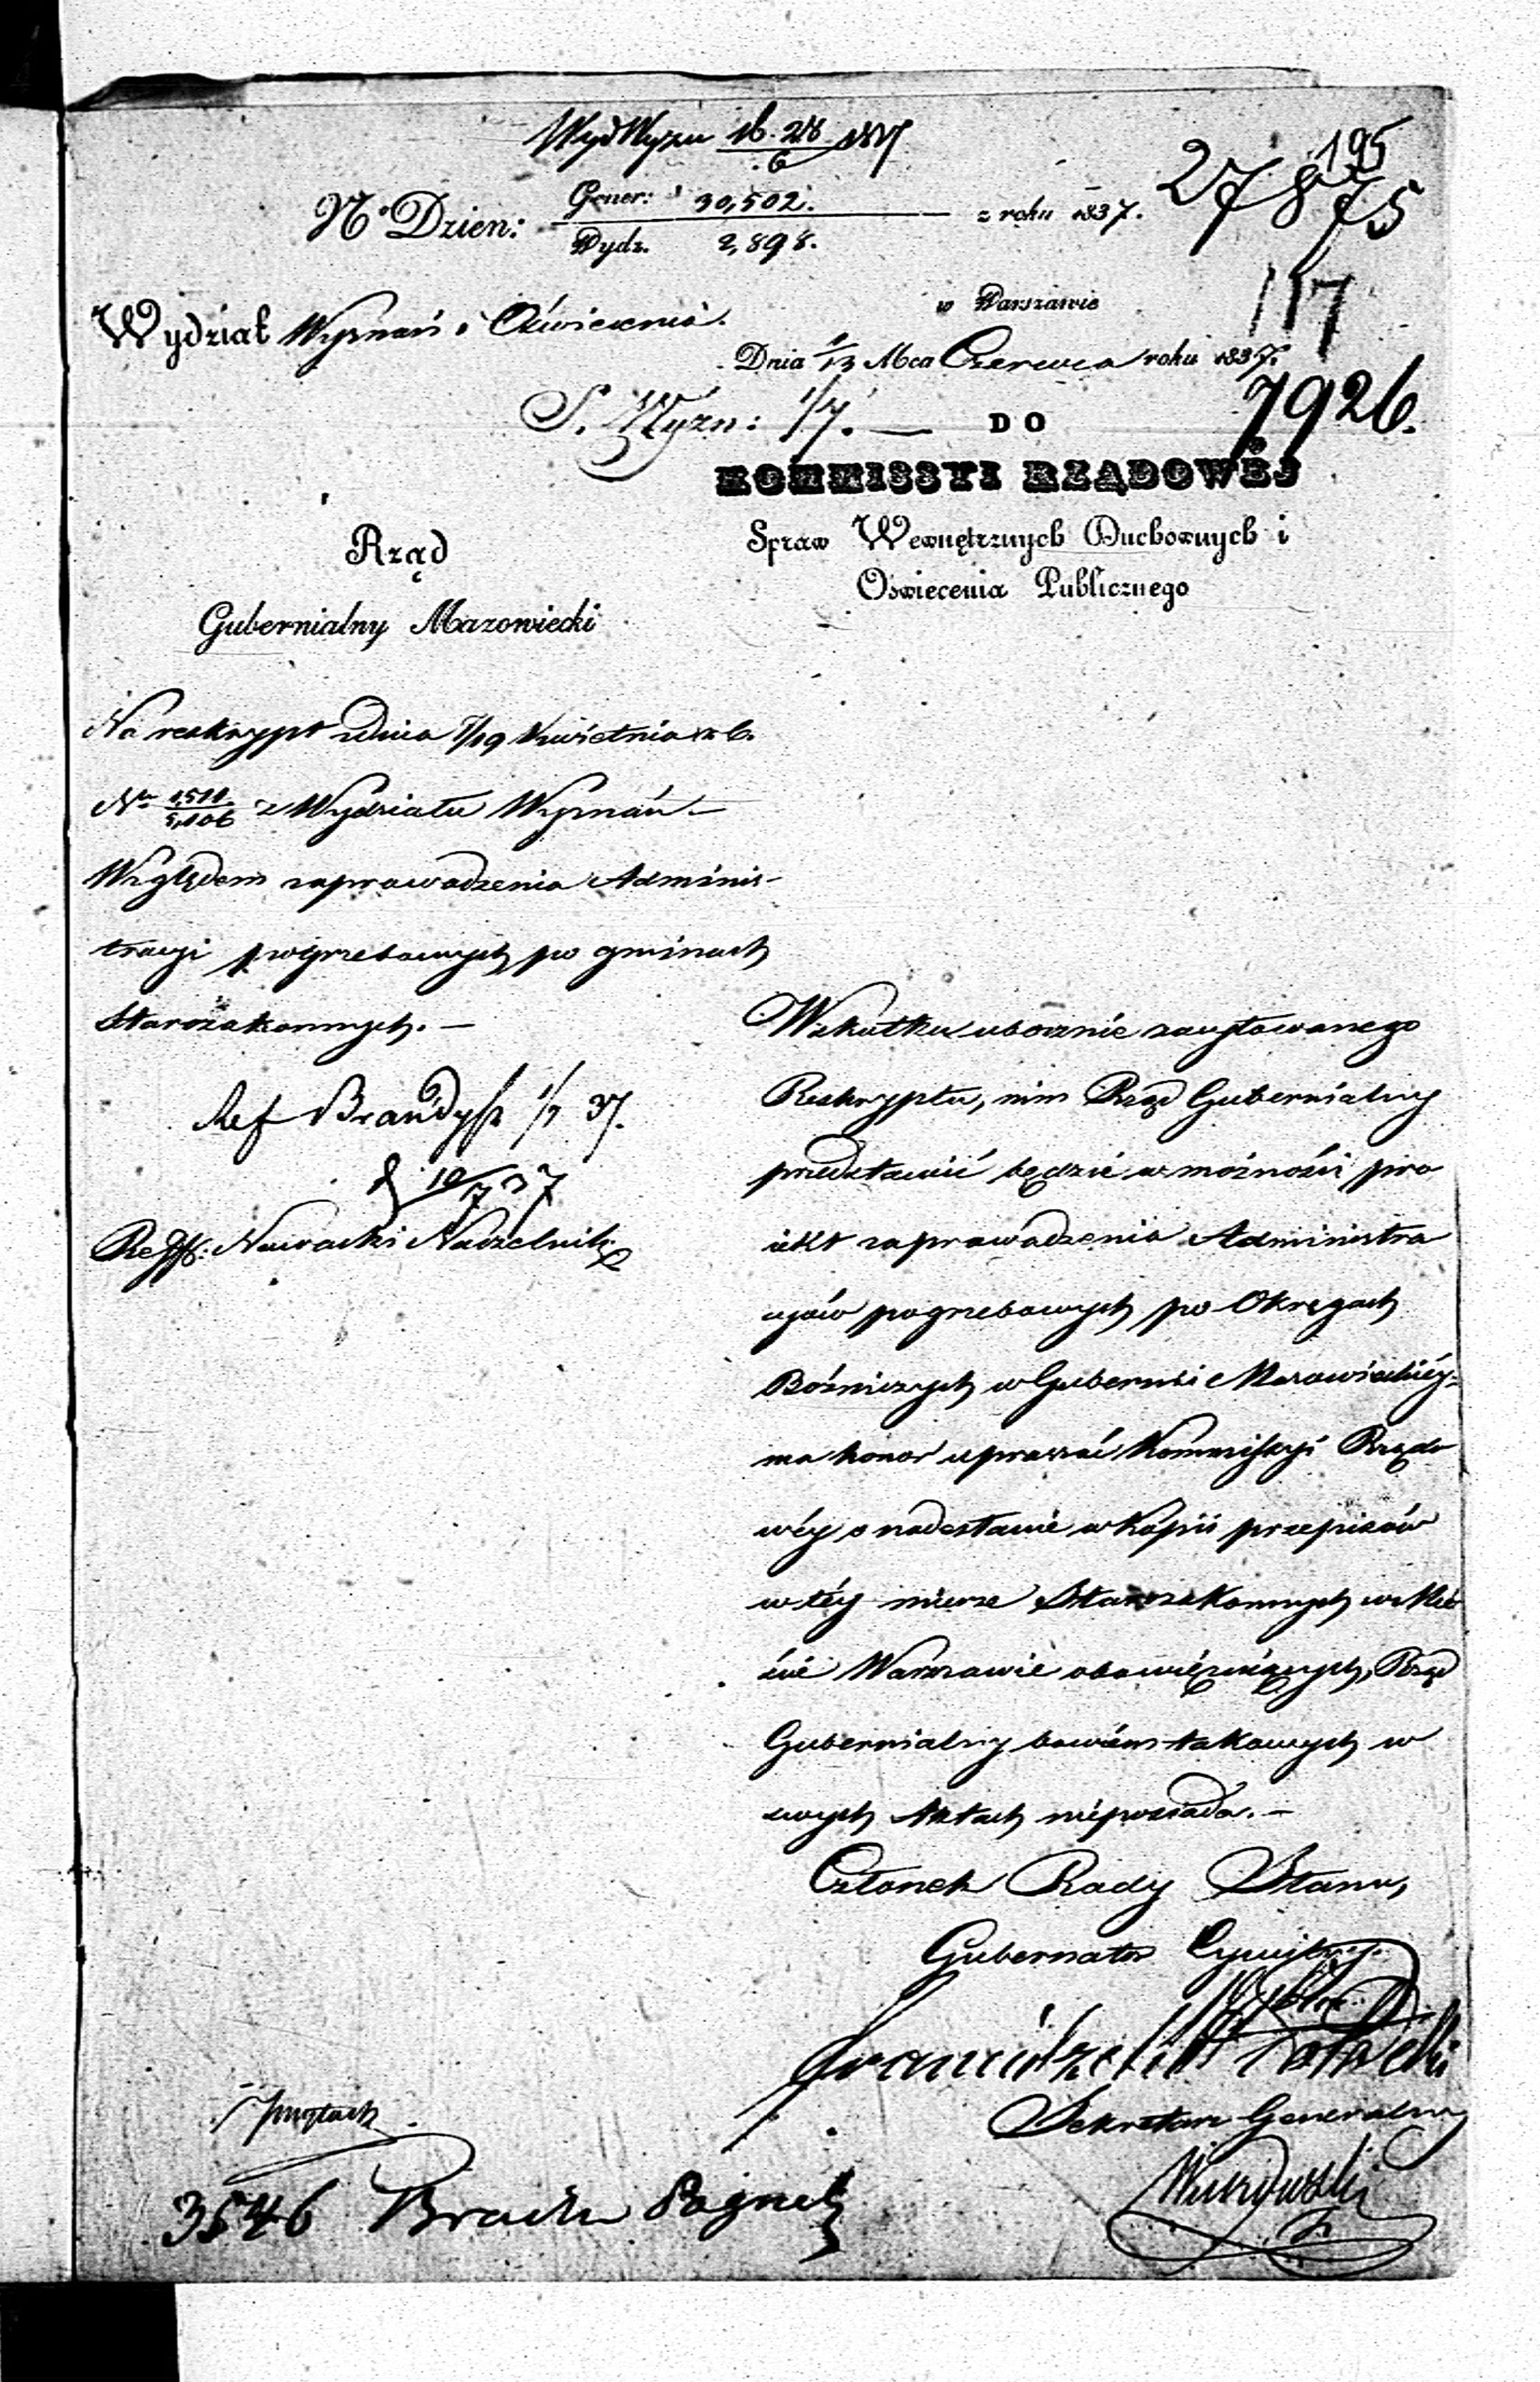 195
27875
N° Dzien: Gener: 30,502. z roku 1837.
Wydz. 2,898.
117
w Warszawie
Wydział Wyznań i Oświecenia.
Dnia 1/13 Mca Czerwca roku 1837.
7926.
S. Wyzn: 1/7. — DO
KOMMISSYI RZĄDOWÉJ
Spraw Wewnętrznych Duchownych i
Oświecenia Publicznego
Rząd
Gubernialny Mazowiecki
Na reskrypt zdnia 7/19 Kwietnia r. b.
Nr 1511/5,106 z Wydziału Wyznań.—
Względem zaprowadzenia Adminis-
tracyi pogrzebowych po gminach
Starozakonnych. —
Ref Brandys 1/7 37.
10/7 37
Reff: Nawracki Naczelnik
Wskutku ubocznie zacytowanego
Reskryptu, nim Rząd Gubernialny
przedstawić będzie w możności pro
iekt zaprowadzenia Administra
cyów pogrzebowych po Okręgach
Bóżniczych w Gubernii Mazowieckiéy=
ma honor upraszać Kommissyi Rządo
wéy o nadesłanie w kopii przepisów
w téy mierze Starozakonnych w Mie
ście Warszawie obowięzuiących, Rząd
Gubernialny bowiem takowych w
swych Aktach nieposiada. —
Członek Rady Stanu,
Gubernator Cywilny
Sekretarz Generalny
3546